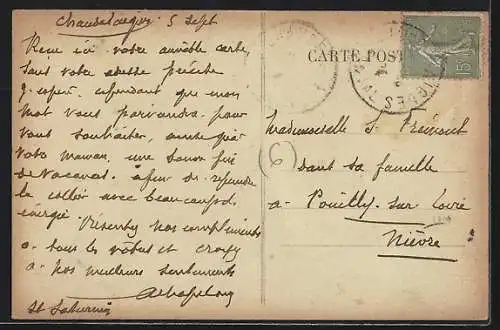 Chaudesaigues 5 Sept
Reçu ici votre aimable carte
sans votre adresse précise
j'espère cependant que mon
mot vous parviendra pour
vous souhaiter, ainsi qu'à
votre maman, une bonne fin
de vacances afin de reprendre
le collier avec beaucoup d'
énergie. Présentez nos compliments
à tous les vôtres et croyez
à nos meilleurs sentiments
CARTE POST
15
Mademoiselle S. Frémont
dans sa famille
à Pouilly-sur Loire
Nièvre
6